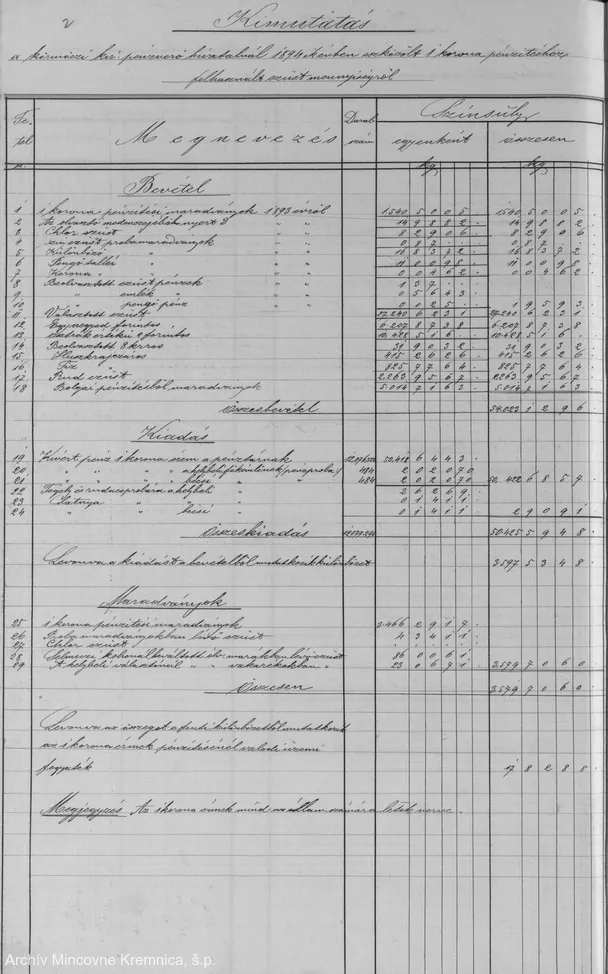 2
Kimutatás
a körmöczi kir. pénzverő hivatalnál 1894 évben eszközölt 1 korona pénzitéshez
felhasznált ezüst mennyiségről
Tétel Megnevezés Darabszám Színsúly
egyenként összesen
kg kg
Bevétel
1 1 korona pénzitési maradványok 1893 évről 1540 5005 1540 5005
2 Az olvasztó nyert 14 9882 14 9882
3 Chlor ezüst 8 2906 8 2906
4 ezüst próbamaradványok 087 087
5 Különböző 16 8372 16 8372
6 Pengő tallér 11 0098 11 0098
7 Korona 0 0462 0 0462
8 Beolvasztott ezüst pénzek 137
9 emlék 0 5643
10 pengő pénz 0 025 1 9593
11 Választott ezüst 27.240 6231 27.240 6231
12 Egynegyed forintos 6.207 8738 6.207 8738
13 értékű forintos 10.428 516 10.428 516
14 Beolvasztott 31 9032 31 9032
15 Huszkrajczáros 415 2626 415 2626
16 Tíz 825 7764 825 7764
17 Rúd ezüst 2.263 9567 2263 9567
18 Bolgár pénzitésből maradványok 5.014 7163 5.014 7163
Összesbevétel 54.023 1296
Kiadás
19 Kivert pénz 1 korona érem a pénztárnak 50.418 6443
20 484 2 02070
21 bécsi 484 2 02070 50.422 6857
22 helybeli 2 6269
23 0 1411
24 bécsi 0 1411 2 9091
Összeskiadás 50425 5948
Levonva a kiadást a bevételből mutatkozik különbözet 3597 5348
Maradványok
25 1 korona pénzitési maradványok 3.466 2917
26 Próba maradványokban lévő ezüst 4 3411
27 Chlor ezüst
28 Selmeczi 86 0061
29 A helybeli választónál 23 0671 3.579 7060
Összesen 3579 7060
Levonva az összeget a fenti különbözetből mutatkozik
az 1 korona érmek pénzitésénél valódi üzemi
fogyaték 17 8288
Megjegyzés Az 1 korona érmek mind az állam számára lettek verve.
Archív Mincovne Kremnica, š.p.